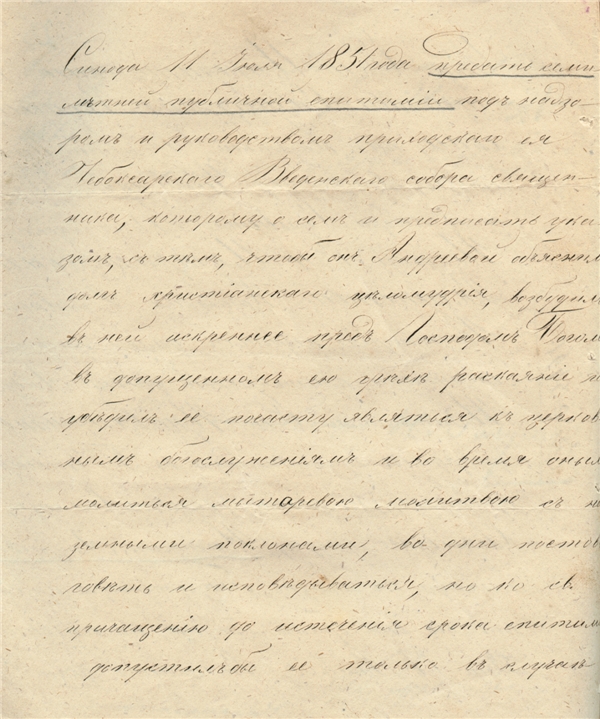 Синода 11 Июля 1851 года предать семи
лѣтней публичной епитиміи подъ надзо-
ромъ и руководствомъ приходскаго ея
Чебоксарскаго Введенскаго собора священ-
ника, которому о семъ и предписать ука
зомъ, съ тѣмъ, чтобы онъ Андреевой объясни
долгъ христіанскаго цѣломудрія, возбудилъ
въ ней искреннее предъ Господомъ Богом
въ допущенномъ ею грѣхѣ раскаяніе и
убѣдилъ ее почасту являться къ церков
нымъ богослуженіямъ и во время оных
молиться мытаревою молитвою съ
земными поклонами, во дни постов
говѣть и исповѣдываться, но ко св
причащенію до истеченія срока епитим
допустилъ бы ее только въ случаѣ